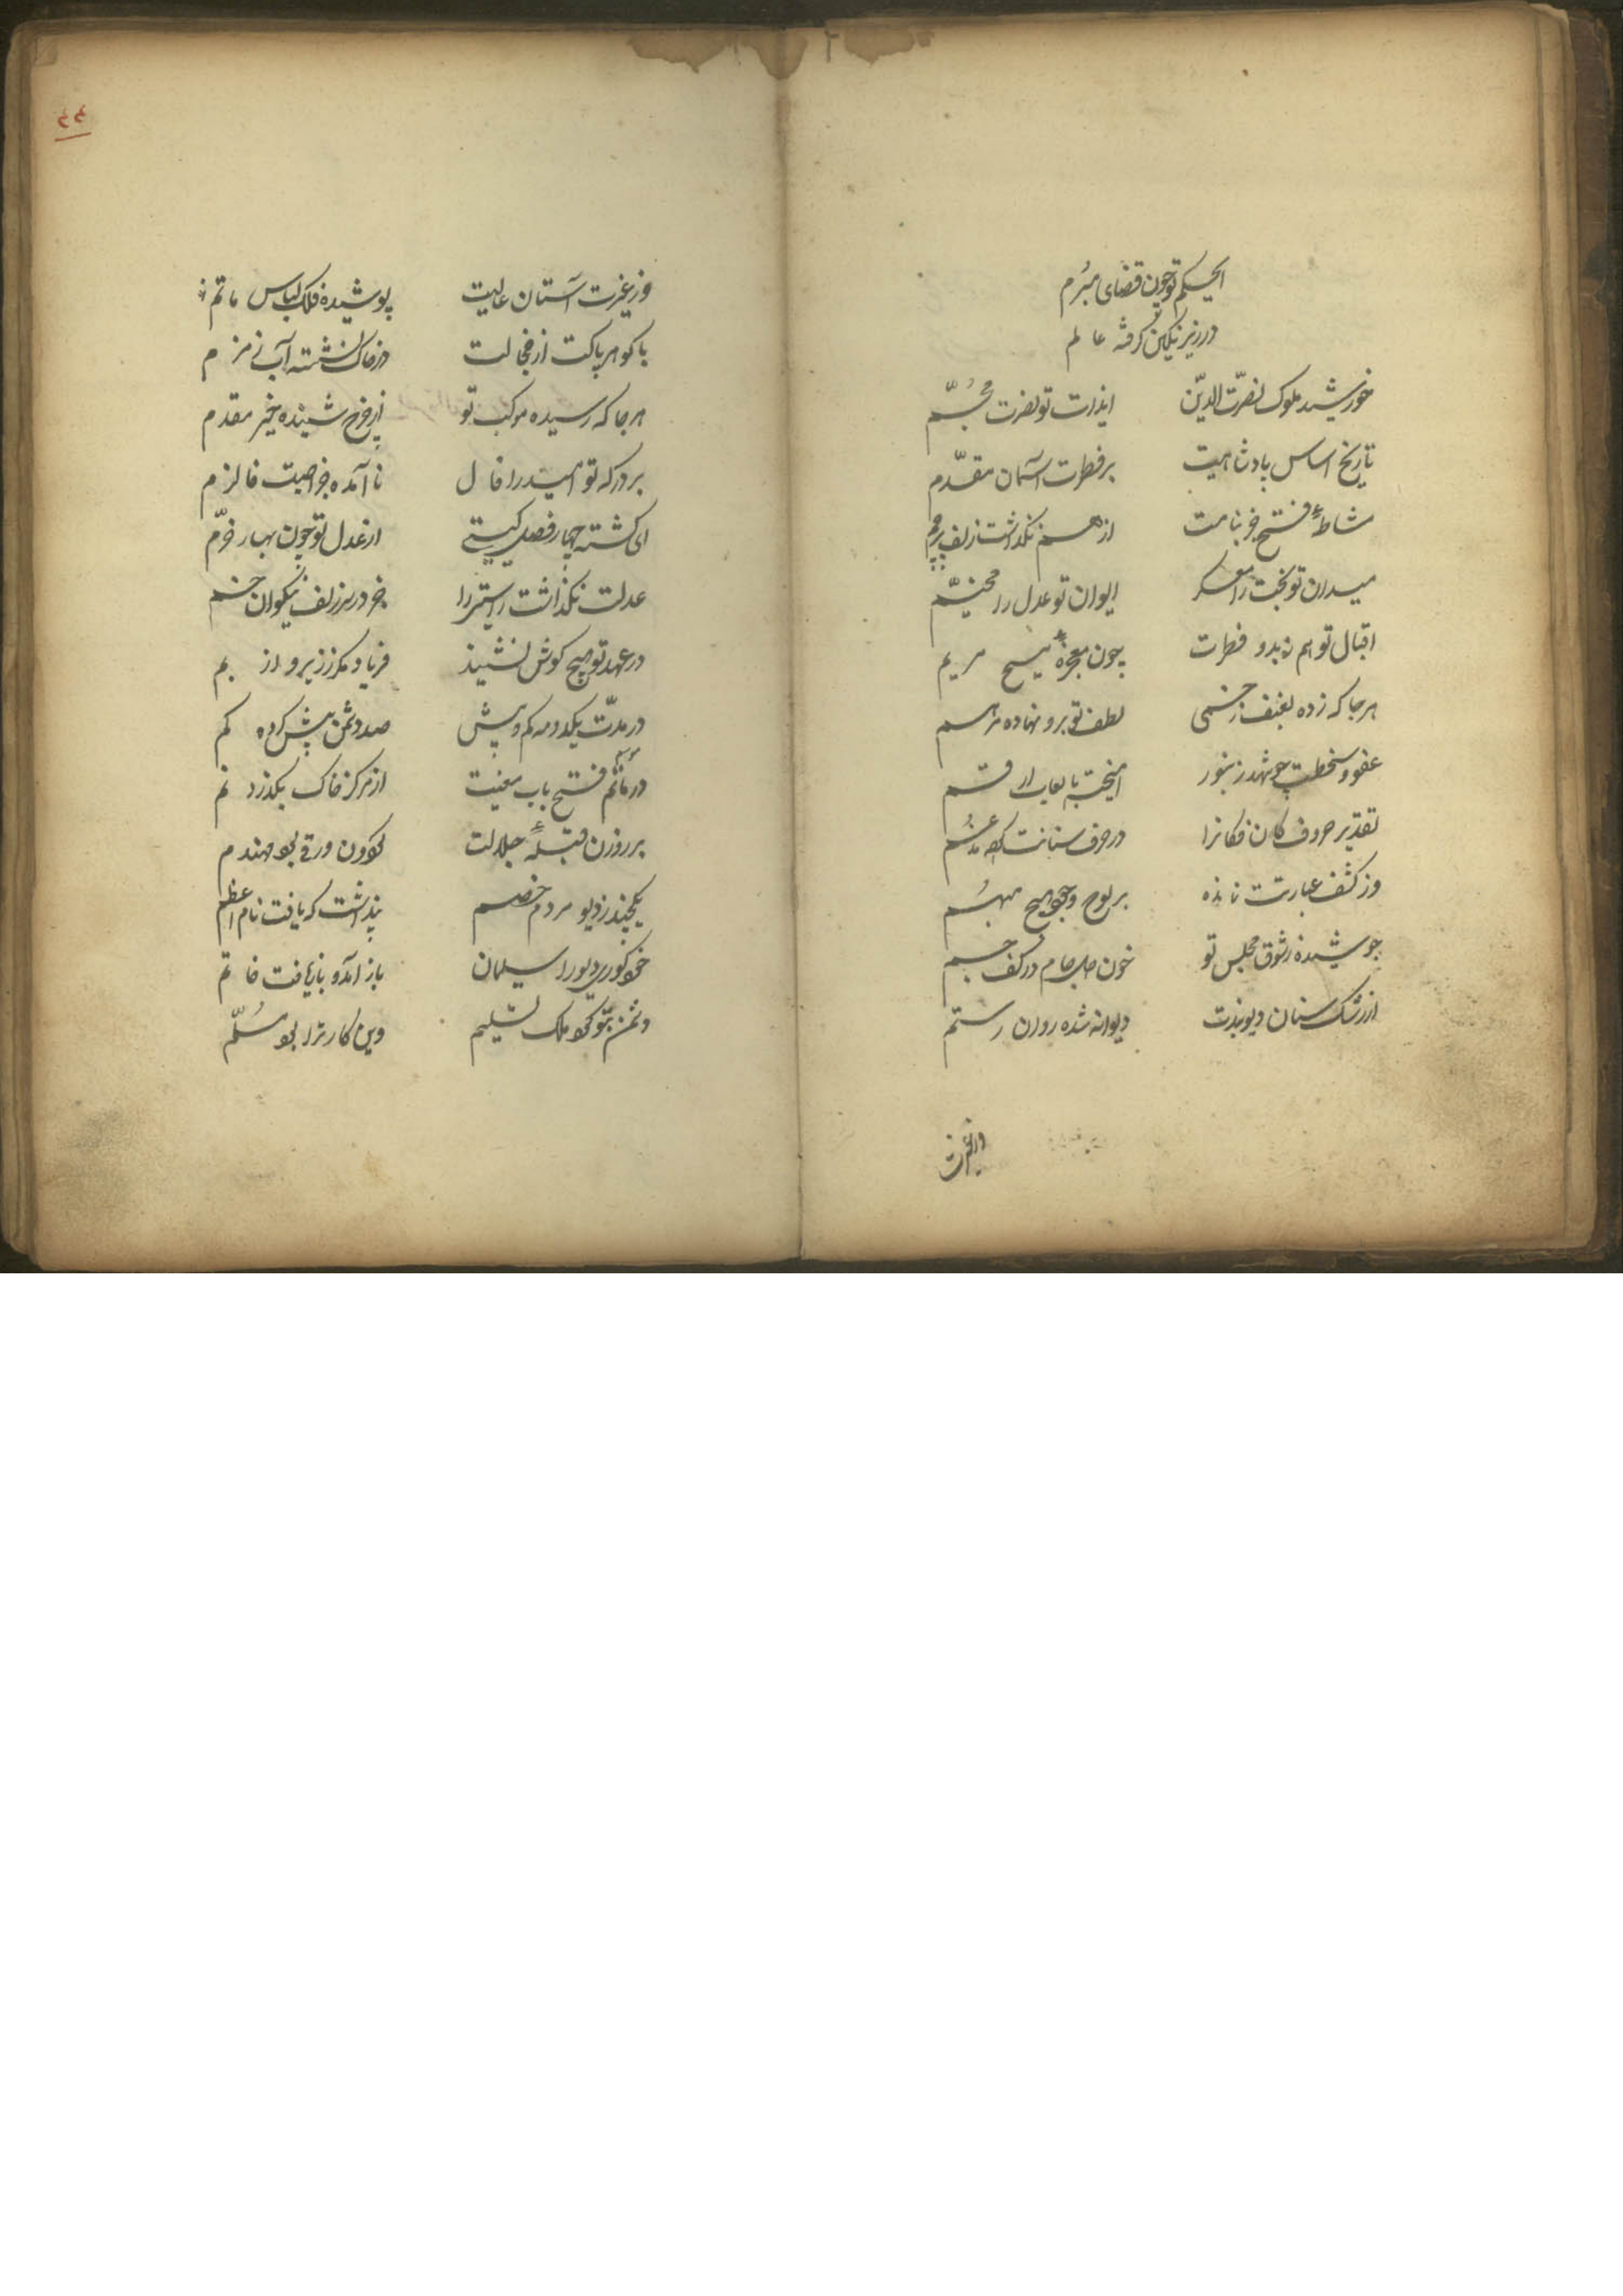 ای حکم تو چون قضای مبرم
در زیر نگین گرفته عالم
خورشید ملوک نصرت الدین    ای ذات تو نصرت مجسم
تاریخ اساس بادشاهیت    بر فطرت آسمان مقدم
مشاطهٔ فتح جز بنامت    از هم نگذاشت زلف پرچم
میدان تو بخت را معسکر    ایوان تو عدل را مخیم
اقبال تو هم ز بدو فطرت    چون معجزهٔ مسیح مریم
هرجا که زده بعنف زخمی    لطف تو برو نهاده مرهم
عفو و سخطت چو شهد زنبور    آمیخته با لعاب ارقم
تقدیر حروف کان فکانرا    در حرف سنانت کرده مدغم
وز کشف عبارتت نمانده    بر لوح وجود هیچ مبهم
جوشیده ز شوق مجلس تو    خون دل جام در کف جم
از رشک سنان دیوبندت    دیوانه شده روان رستم
وز غیرت
وز غیرت آستان عالیت    پوشیده فلک لباس ماتم
با کوهر پاکت از خجالت    در خاک نشسته آب زمزم
هرجا که رسیده موکب تو    از فرخ شنیده خیر مقدم
بر درکه تو امید را فال    نا آمده جز اصبت فالزم
ای کشته چهار فصل کیتی    از عدل تو چون بهار خرم
عدلت نکذاشت راستی را    جز در سر زلف نیکوان خم
در عهد تو هیچ کوش نشنید    فریاد مکر ز زیر و از بم
در مدت یکدو مه کم و بیش    صد دشمن بیش کرده کم
در ماتم فتح باب تیغت    از مرکز خاک بکذرد نم
بر روزن قبهٔ جلالت    کردون ورقی بود مهندم
یکچند ز دیو مردم خصم    پنداشت که یافت نام اعظم
خود کوری دیو را سلیمان    باز آمد و باز یافت خاتم
دشمن بتو کرد ملک تسلیم    وین کار ترا بود مسلم